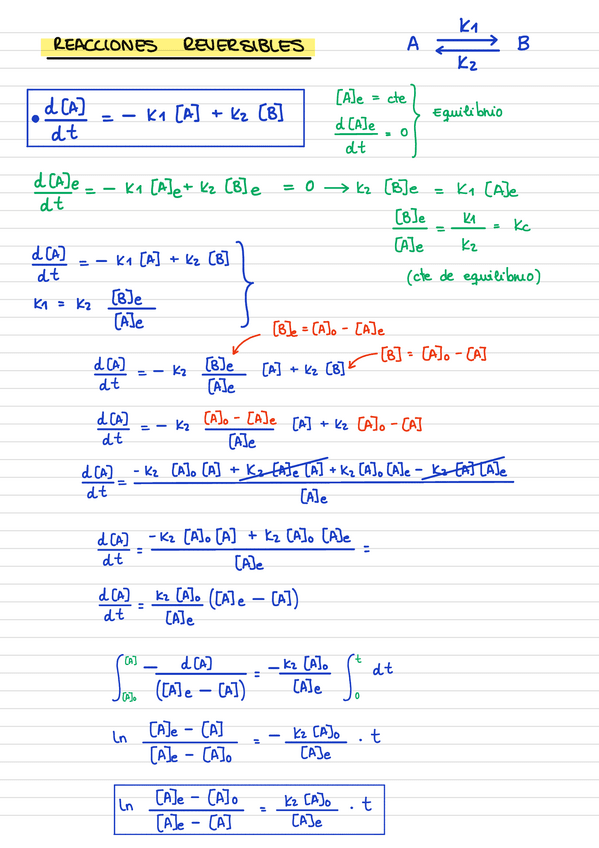 REACCIONES REVERSIBLES
A ⇄ B
K1
K2
• d[A]/dt = − K1 [A] + K2 [B]
[A]e = cte
d[A]e/dt = 0 } Equilibrio
d[A]e/dt = − K1 [A]e + K2 [B]e = 0 → K2 [B]e = K1 [A]e
[B]e/[A]e = K1/K2 = Kc
(cte de equilibrio)
d[A]/dt = − K1 [A] + K2 [B]
K1 = K2 [B]e/[A]e
[B]e = [A]o − [A]e
[B] = [A]o − [A]
d[A]/dt = − K2 [B]e/[A]e [A] + K2 [B]
d[A]/dt = − K2 [A]o − [A]e/[A]e [A] + K2 [A]o − [A]
d[A]/dt = −K2 [A]o [A] + K2 [A]e [A] + K2 [A]o [A]e − K2 [A] [A]e/[A]e
d[A]/dt = −K2 [A]o [A] + K2 [A]o [A]e/[A]e =
d[A]/dt = K2 [A]o/[A]e ([A]e − [A])
∫[A]o[A] − d[A]/([A]e − [A]) = −K2 [A]o/[A]e ∫0t dt
ln [A]e − [A]/[A]e − [A]o = − K2 [A]o/[A]e · t
ln [A]e − [A]o/[A]e − [A] = K2 [A]o/[A]e · t